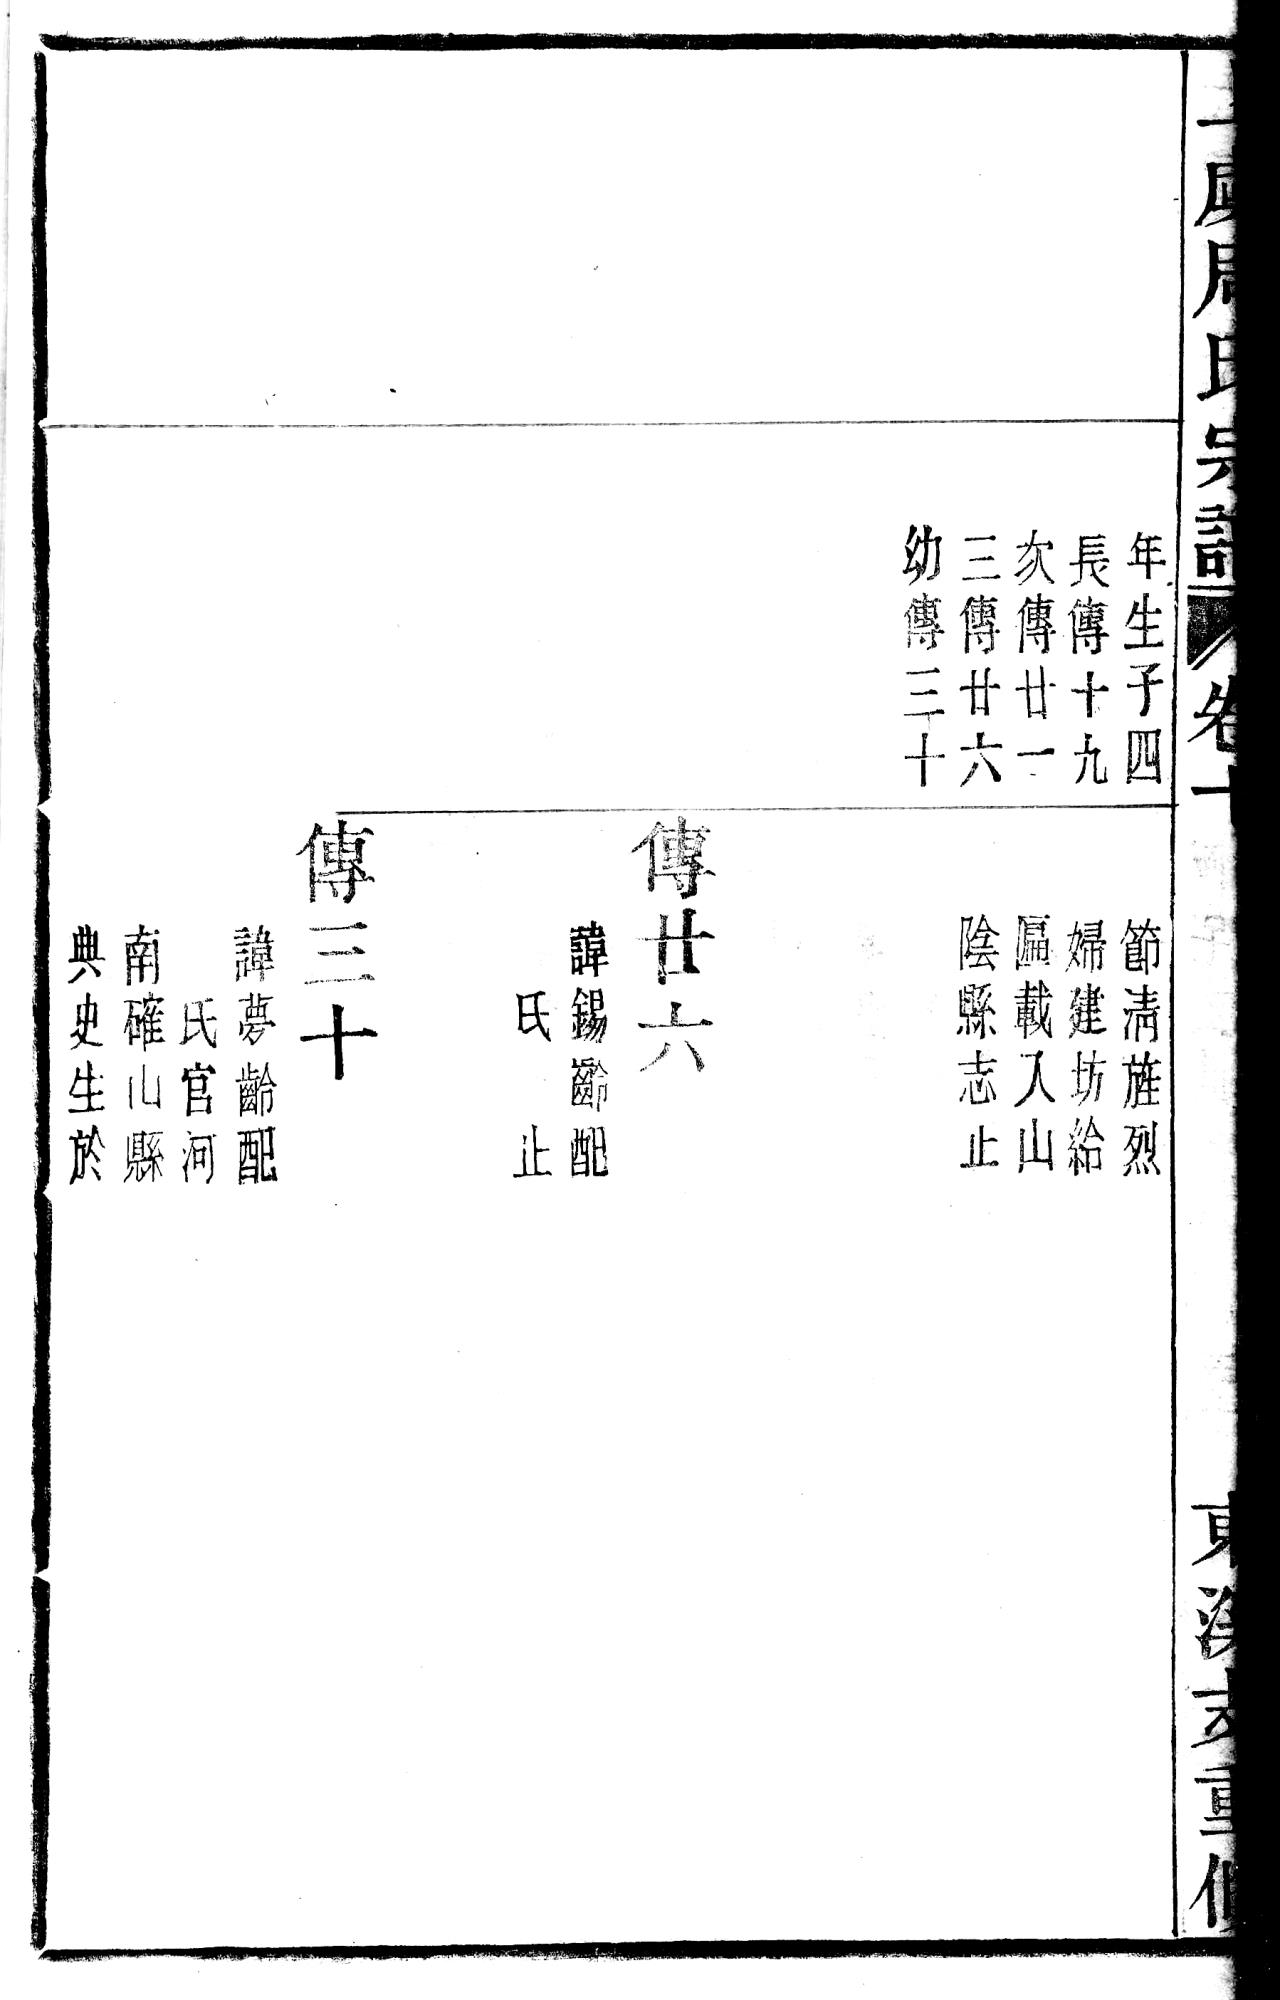 周氏宗譜 卷十
年生子四
長傳十九
次傳廿一
三傳廿六
幼傳三十
節清旌烈
婦建坊給
匾載入山
陰縣志止
傳廿六
諱錫齡配
氏 止
傳三十
諱夢齡配
氏官河
南確山縣
典史生於
東溪支重修